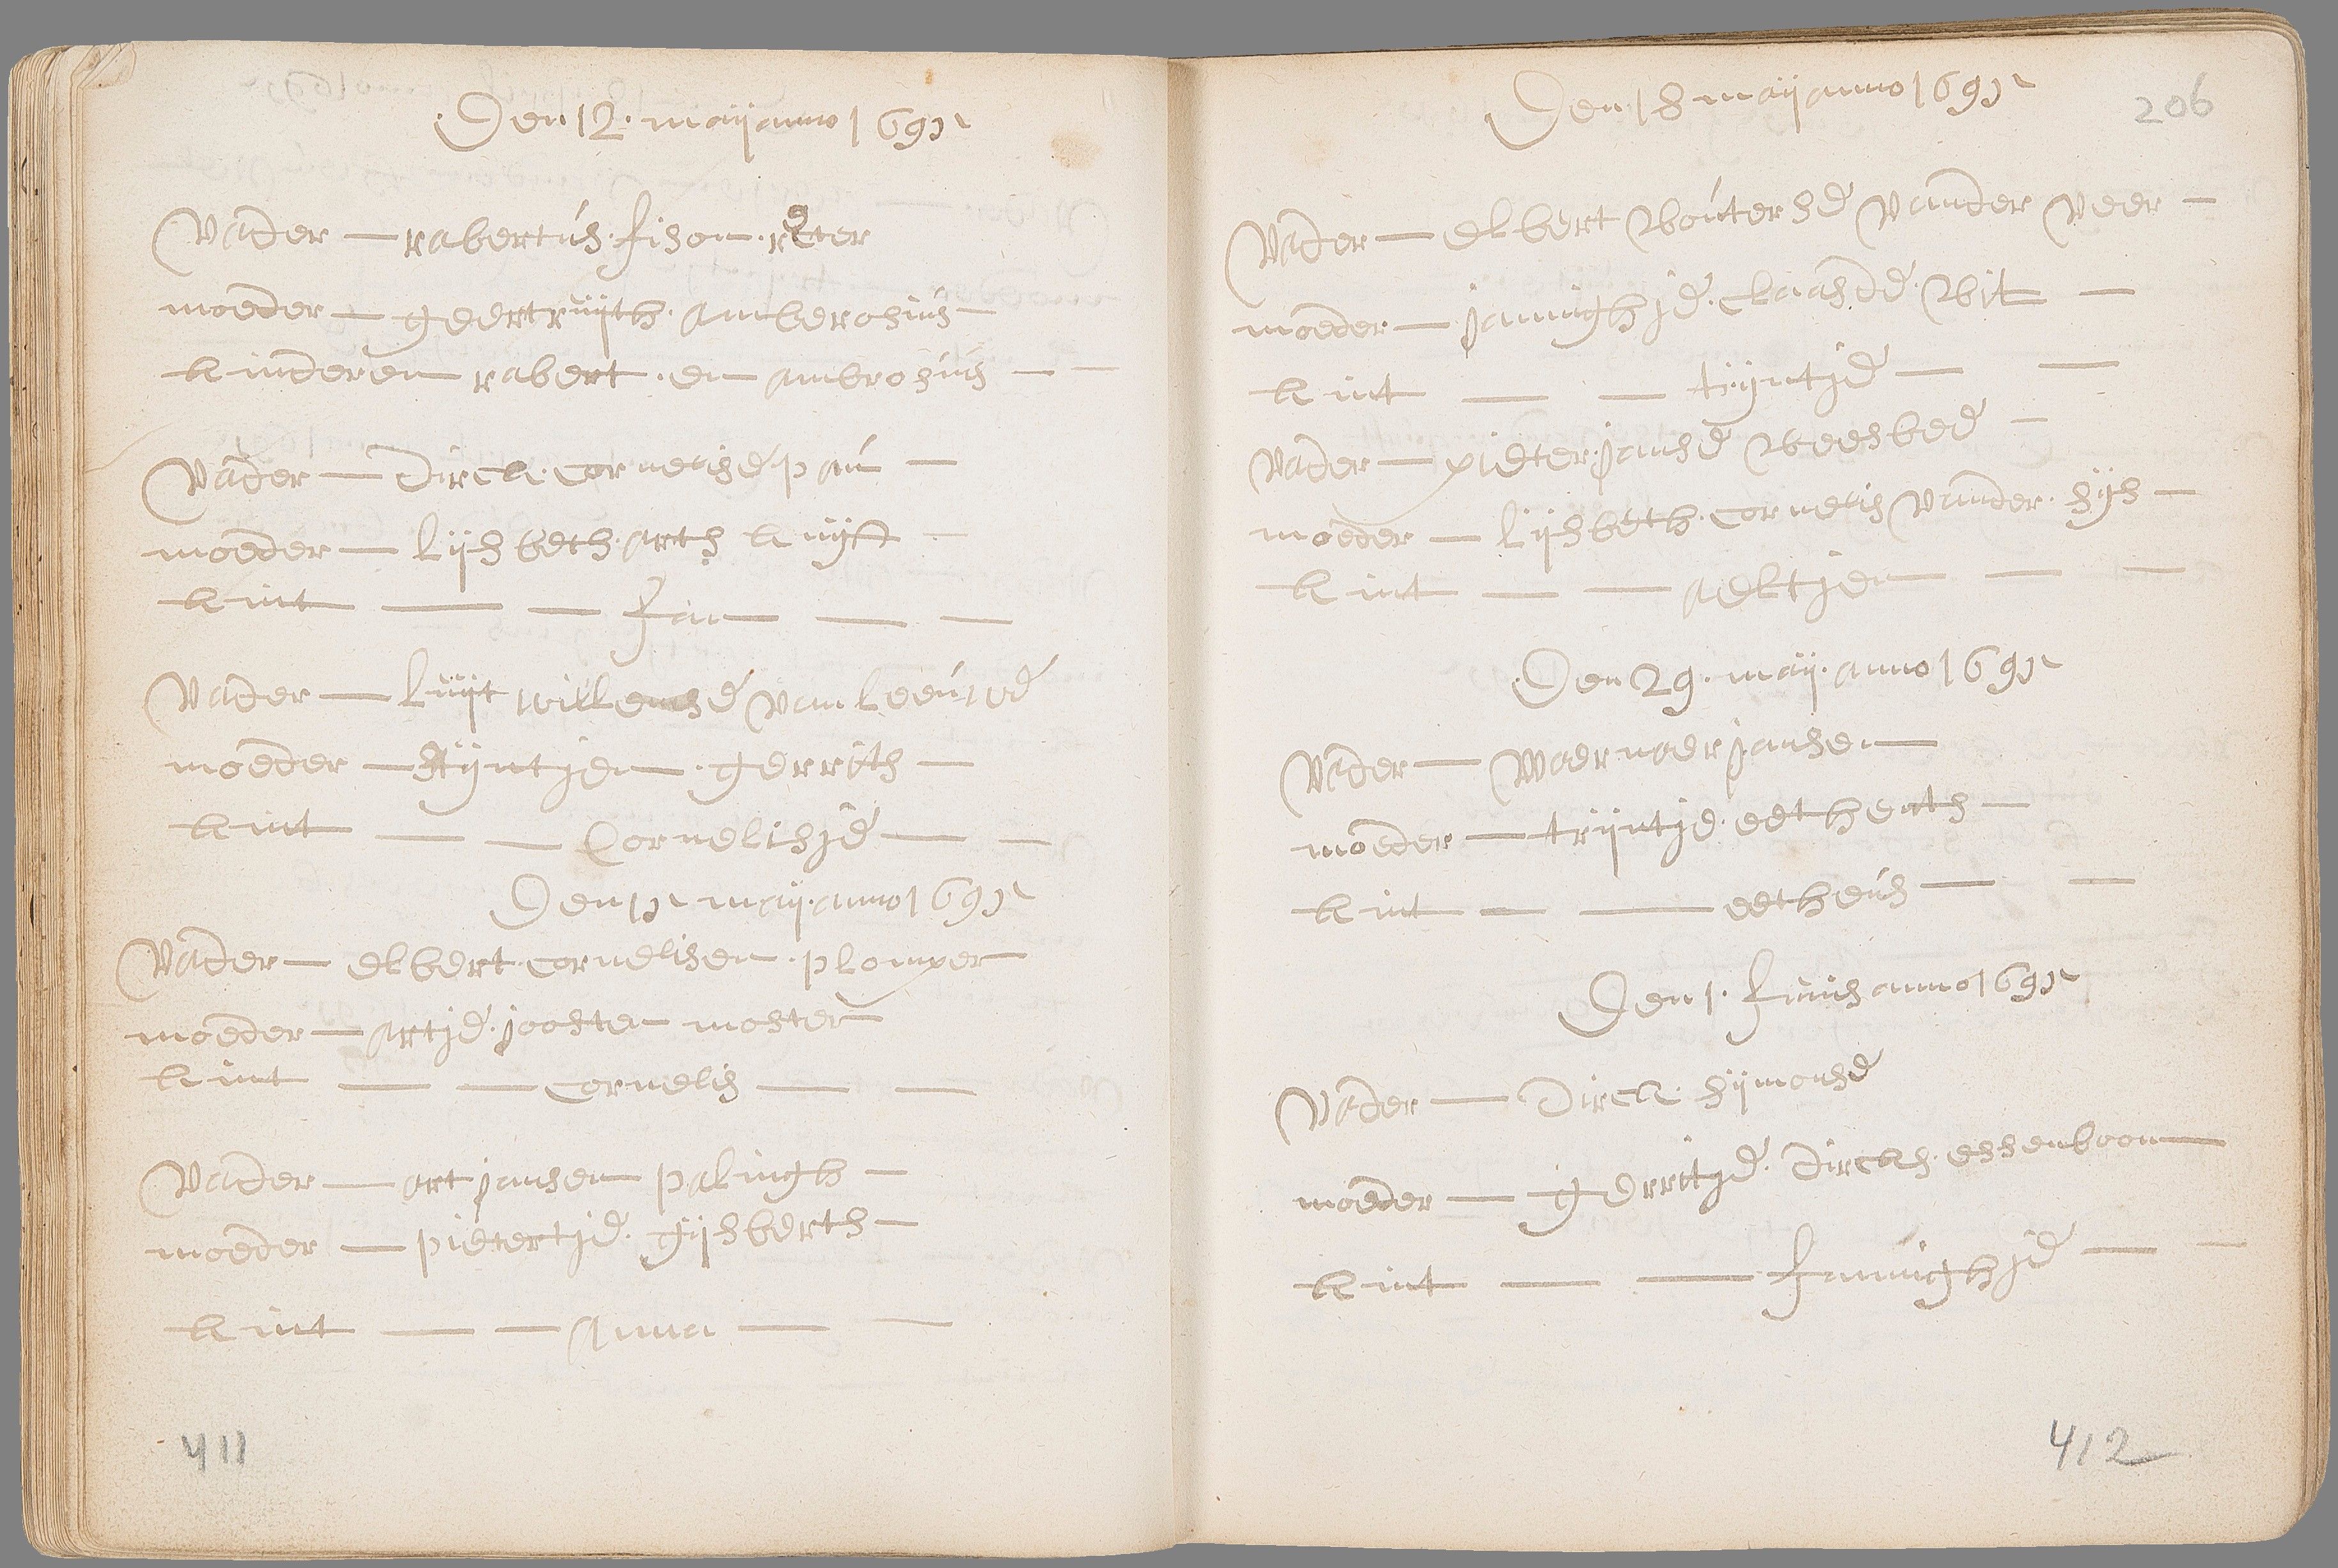 Den 12. maij anno 1695
Vader — rabertus. fison. retter
moeder — geertruijth. amberosius —
kinderen rabert. en ambrosius — —
Vader — Dirck. Cornelise pau —
moeder — lijsbeth. arts kuijf —
kint — — Jan — —
Vader — luijt willemse van leeuwe
moeder — stijntjen. gerrits —
kint — — Cornelisje — —
Den 15 maij. anno 1695
Vader — elbert. cornelisen. plomper
moeder — artje. joosten moster
kint — — cornelis — —
Vader — art jansen palingh —
moeder — pietertje. gijsberts —
kint — — Anna — —
411
206
Den 18 maij anno 1695
Vader — elbert Wouterse vander Veer —
moeder — jannighje. Claas de. Wit —
kint — — trijntje — —
Vader — pieter. janse Weesbee —
moeder — lijsbeth. cornelis vander. hijs —
kint — — aeltjen — —
Den 29. maij. anno 1695
Vader — Waernaer jansen
moeder — trijntje. eetheuts —
kint — — eetheus — —
Den 1. Junis anno 1695
Vader — Dirck. sijmonse
moeder — gerritje. Dircks. essenboom
kint — — Jannighje — —
412